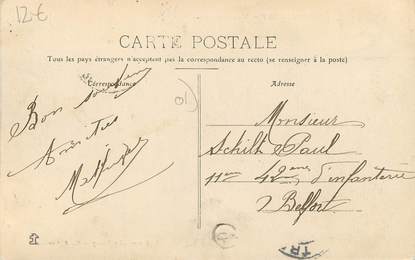 12€
CARTE POSTALE
Tous les pays étrangers n'acceptent pas la correspondance au recto (se renseigner à la poste)
Correspondance
Adresse
Bon
Amitiés
Monsieur
Schilh Paul
11ème 42ème d'infanterie
Belfort